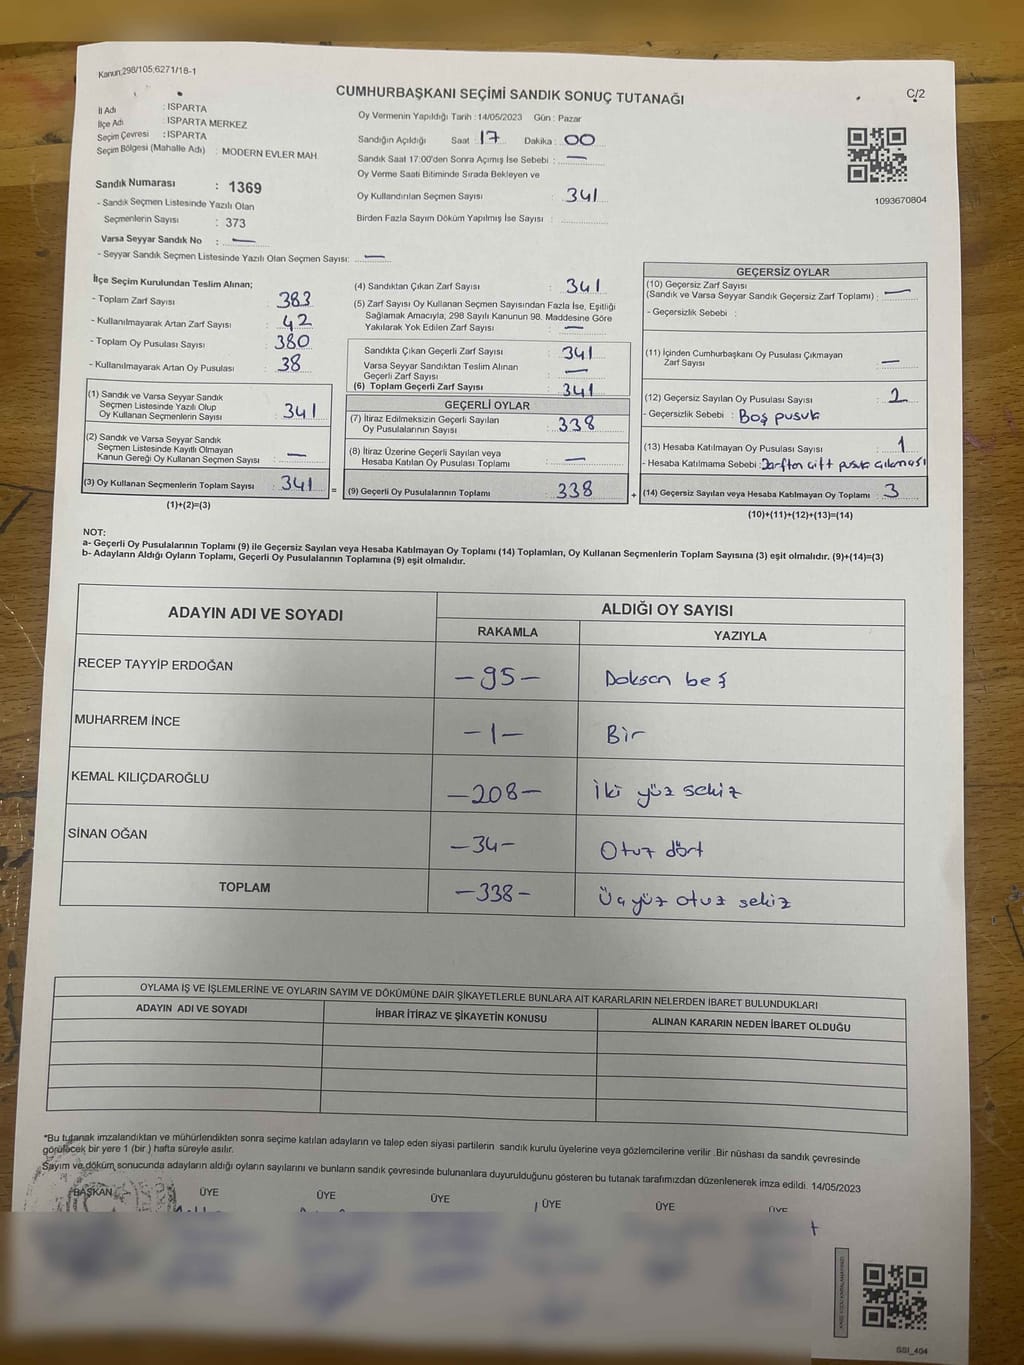 Kanun;298/105;6271/18-1
C/2
CUMHURBAŞKANI SEÇİMİ SANDIK SONUÇ TUTANAĞI
İl Adı : ISPARTA
İlçe Adı : ISPARTA MERKEZ
Seçim Çevresi : ISPARTA
Seçim Bölgesi (Mahalle Adı) : MODERN EVLER MAH.
Sandık Numarası : 1369
- Sandık Seçmen Listesinde Yazılı Olan
Seçmenlerin Sayısı : 373
Varsa Seyyar Sandık No : —
- Seyyar Sandık Seçmen Listesinde Yazılı Olan Seçmen Sayısı: —
Oy Vermenin Yapıldığı Tarih : 14/05/2023 Gün : Pazar
Sandığın Açıldığı Saat : 17 Dakika : 00
Sandık Saat 17:00'den Sonra Açımış İse Sebebi : —
Oy Verme Saati Bitiminde Sırada Bekleyen ve
Oy Kullandırılan Seçmen Sayısı : 341
Birden Fazla Sayım Döküm Yapılmış İse Sayısı :
1093670804
İlçe Seçim Kurulundan Teslim Alınan;
- Toplam Zarf Sayısı : 383
- Kullanılmayarak Artan Zarf Sayısı : 42
- Toplam Oy Pusulası Sayısı : 380
- Kullanılmayarak Artan Oy Pusulası : 38
(1) Sandık ve Varsa Seyyar Sandık
Seçmen Listesinde Yazılı Olup
Oy Kullanan Seçmenlerin Sayısı : 341
(2) Sandık ve Varsa Seyyar Sandık
Seçmen Listesinde Kayıtlı Olmayan
Kanun Gereği Oy Kullanan Seçmen Sayısı : —
(3) Oy Kullanan Seçmenlerin Toplam Sayısı : 341
(1)+(2)=(3)
=
(4) Sandıktan Çıkan Zarf Sayısı : 341
(5) Zarf Sayısı Oy Kullanan Seçmen Sayısından Fazla İse, Eşitliği
Sağlamak Amacıyla, 298 Sayılı Kanunun 98. Maddesine Göre
Yakılarak Yok Edilen Zarf Sayısı : —
Sandıkta Çıkan Geçerli Zarf Sayısı : 341
Varsa Seyyar Sandıktan Teslim Alınan
Geçerli Zarf Sayısı : —
(6) Toplam Geçerli Zarf Sayısı : 341
GEÇERLİ OYLAR
(7) İtiraz Edilmeksizin Geçerli Sayılan
Oy Pusulalarının Sayısı : 338
(8) İtiraz Üzerine Geçerli Sayılan veya
Hesaba Katılan Oy Pusulası Toplamı : —
(9) Geçerli Oy Pusulalarının Toplamı : 338
+
GEÇERSİZ OYLAR
(10) Geçersiz Zarf Sayısı
(Sandık ve Varsa Seyyar Sandık Geçersiz Zarf Toplamı) : —
- Geçersizlik Sebebi :
(11) İçinden Cumhurbaşkanı Oy Pusulası Çıkmayan
Zarf Sayısı : —
(12) Geçersiz Sayılan Oy Pusulası Sayısı : 2
- Geçersizlik Sebebi : Boş pusula
(13) Hesaba Katılmayan Oy Pusulası Sayısı : 1
- Hesaba Katılmama Sebebi : Zarftan çift pusula çıkması
(14) Geçersiz Sayılan veya Hesaba Katılmayan Oy Toplamı : 3
(10)+(11)+(12)+(13)=(14)
NOT:
a- Geçerli Oy Pusulalarının Toplamı (9) ile Geçersiz Sayılan veya Hesaba Katılmayan Oy Toplamı (14) Toplamları, Oy Kullanan Seçmenlerin Toplam Sayısına (3) eşit olmalıdır. (9)+(14)=(3)
b- Adayların Aldığı Oyların Toplamı, Geçerli Oy Pusulalarının Toplamına (9) eşit olmalıdır.
ADAYIN ADI VE SOYADI
ALDIĞI OY SAYISI
RAKAMLA YAZIYLA
RECEP TAYYİP ERDOĞAN —95— Doksan beş
MUHARREM İNCE —1— Bir
KEMAL KILIÇDAROĞLU —208— İki yüz sekiz
SİNAN OĞAN —34— Otuz dört
TOPLAM —338— Üçyüz otuz sekiz
OYLAMA İŞ VE İŞLEMLERİNE VE OYLARIN SAYIM VE DÖKÜMÜNE DAİR ŞİKAYETLERLE BUNLARA AİT KARARLARIN NELERDEN İBARET BULUNDUKLARI
ADAYIN ADI VE SOYADI İHBAR İTİRAZ VE ŞİKAYETİN KONUSU ALINAN KARARIN NEDEN İBARET OLDUĞU
*Bu tutanak imzalandıktan ve mühürlendikten sonra seçime katılan adayların ve talep eden siyasi partilerin sandık kurulu üyelerine veya gözlemcilerine verilir .Bir nüshası da sandık çevresinde
görülecek bir yere 1 (bir.) hafta süreyle asılır.
Sayım ve döküm sonucunda adayların aldığı oyların sayılarını ve bunların sandık çevresinde bulunanlara duyurulduğunu gösteren bu tutanak tarafımızdan düzenlenerek imza edildi. 14/05/2023
BAŞKAN ÜYE ÜYE ÜYE ÜYE ÜYE ÜYE
SSI_404